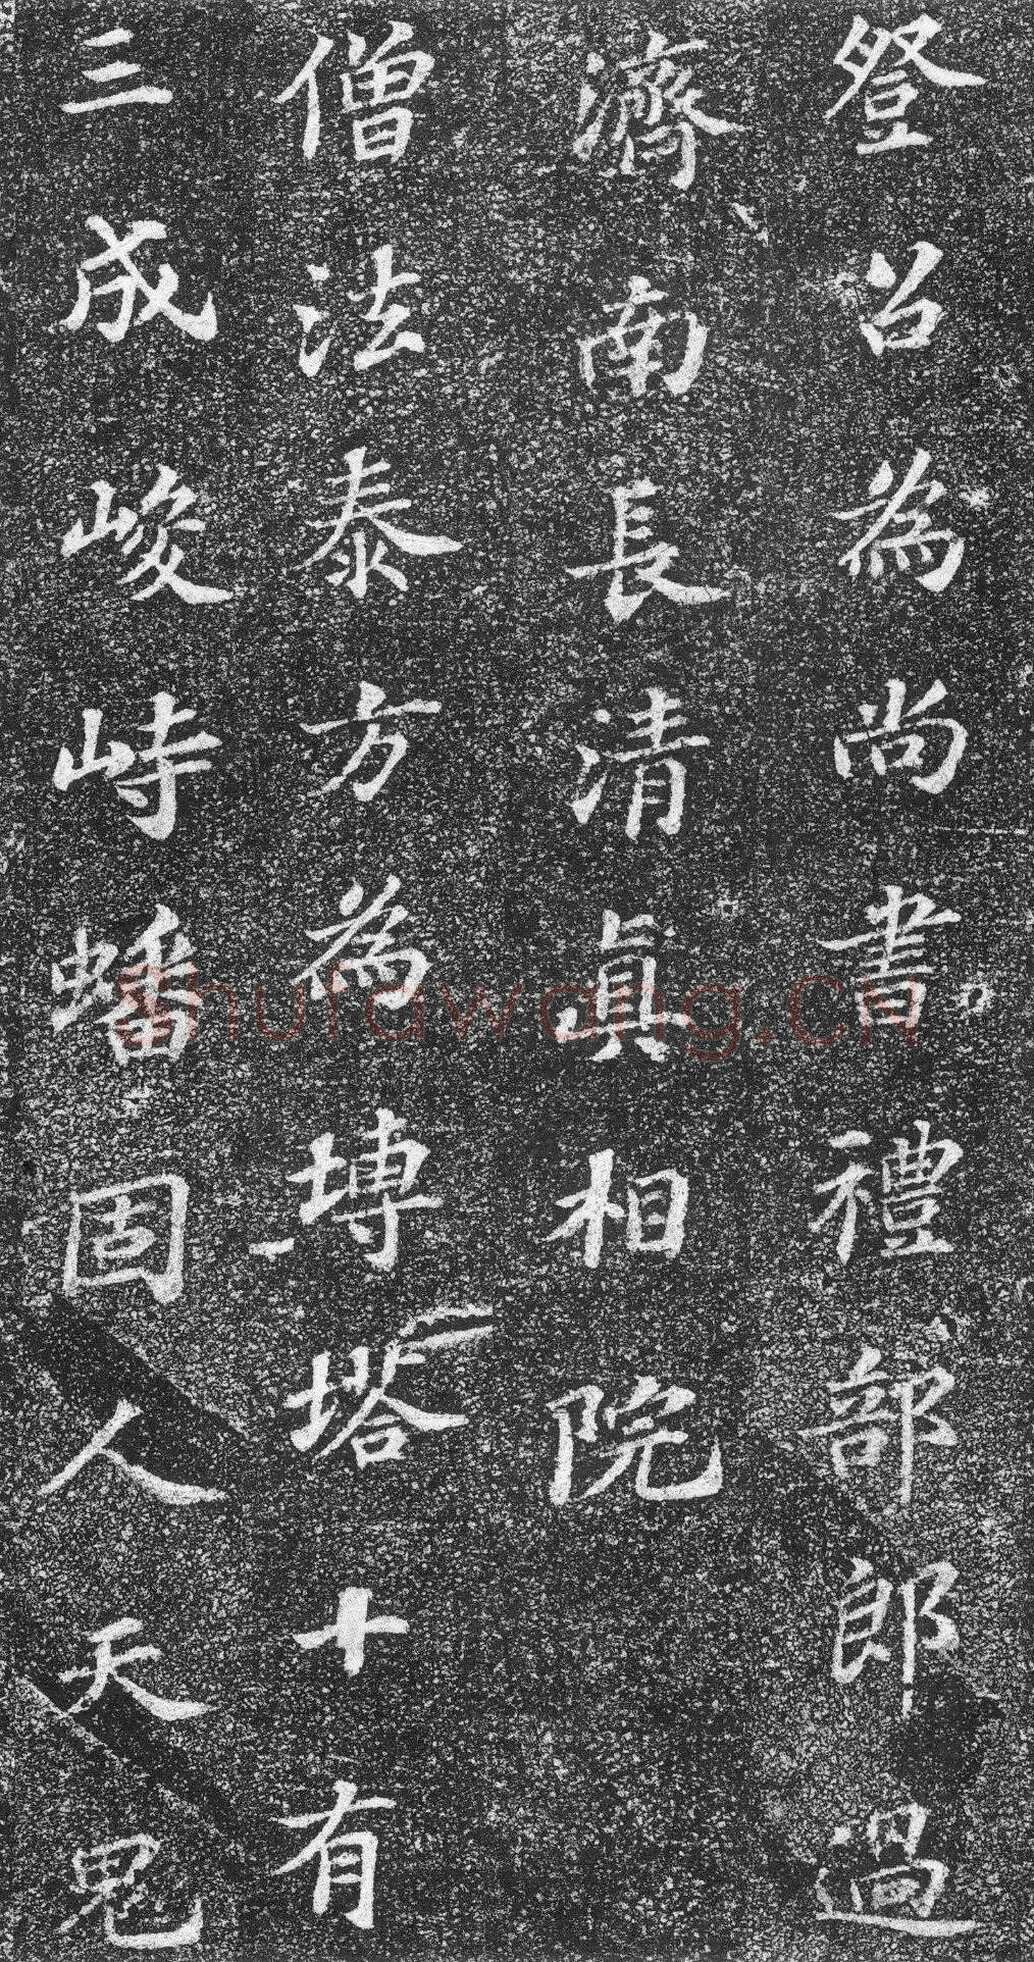 登召為尚書禮部郎過
濟南長清眞相院
僧法泰方為塼塔十有
三成峻峙蟠固人天鬼
Shufawang.CN